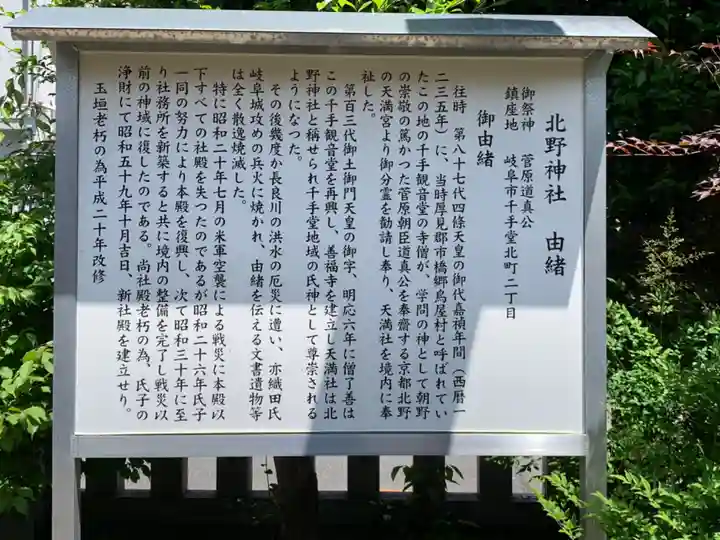 北野神社　由緒
御祭神　菅原道真公
鎮座地　岐阜市千手堂北町二丁目
御由緒
往時、第八十七代四條天皇の御代嘉禎年間（西暦一
二三五年）に、当時厚見郡市橋郷鳥屋村と呼ばれてい
たこの地の千手観音堂の寺僧が、学問の神として朝野
の崇敬の篤かつた菅原朝臣道真公を奉齋する京都北野
の天満宮より御分霊を勧請し奉り、天満社を境内に奉
祉した。
第百三代御土御門天皇の御字、明応六年に僧了善は
この千手観音堂を再興し、善福寺を建立し天満社は北
野神社と称せられ千手堂地域の氏神として尊崇される
ようになつた。
その後幾度か長良川の洪水の厄災に遭い、亦織田氏
岐阜城攻めの兵火に焼かれ、由緒を伝える文書遺物等
は全く散逸焼滅した。
特に昭和二十年七月の米軍空襲による戦災に本殿以
下すべての社殿を失つたのであるが昭和二十六年氏子
一同の努力により本殿を復興し、次て昭和三十年に至
り社務所を新築すると共に境内の整備を完了し戦災以
前の神域に復したのである。尚社殿老朽の為、氏子の
浄財にて昭和五十九年十月吉日、新社殿を建立せり。
玉垣老朽の為平成二十年改修